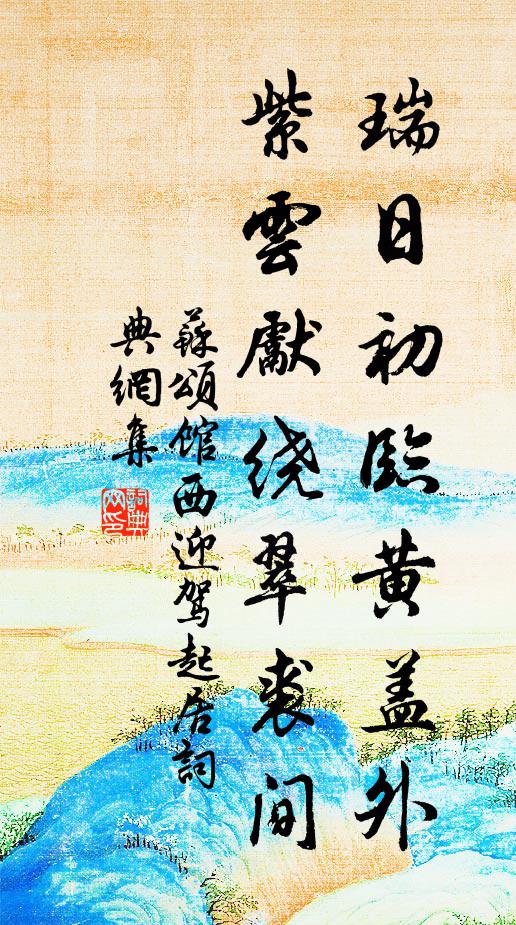 瑞日初臨黄盖外
紫雲獻绕翠裘间
蘇頌館西迎駕起居詞
典網集